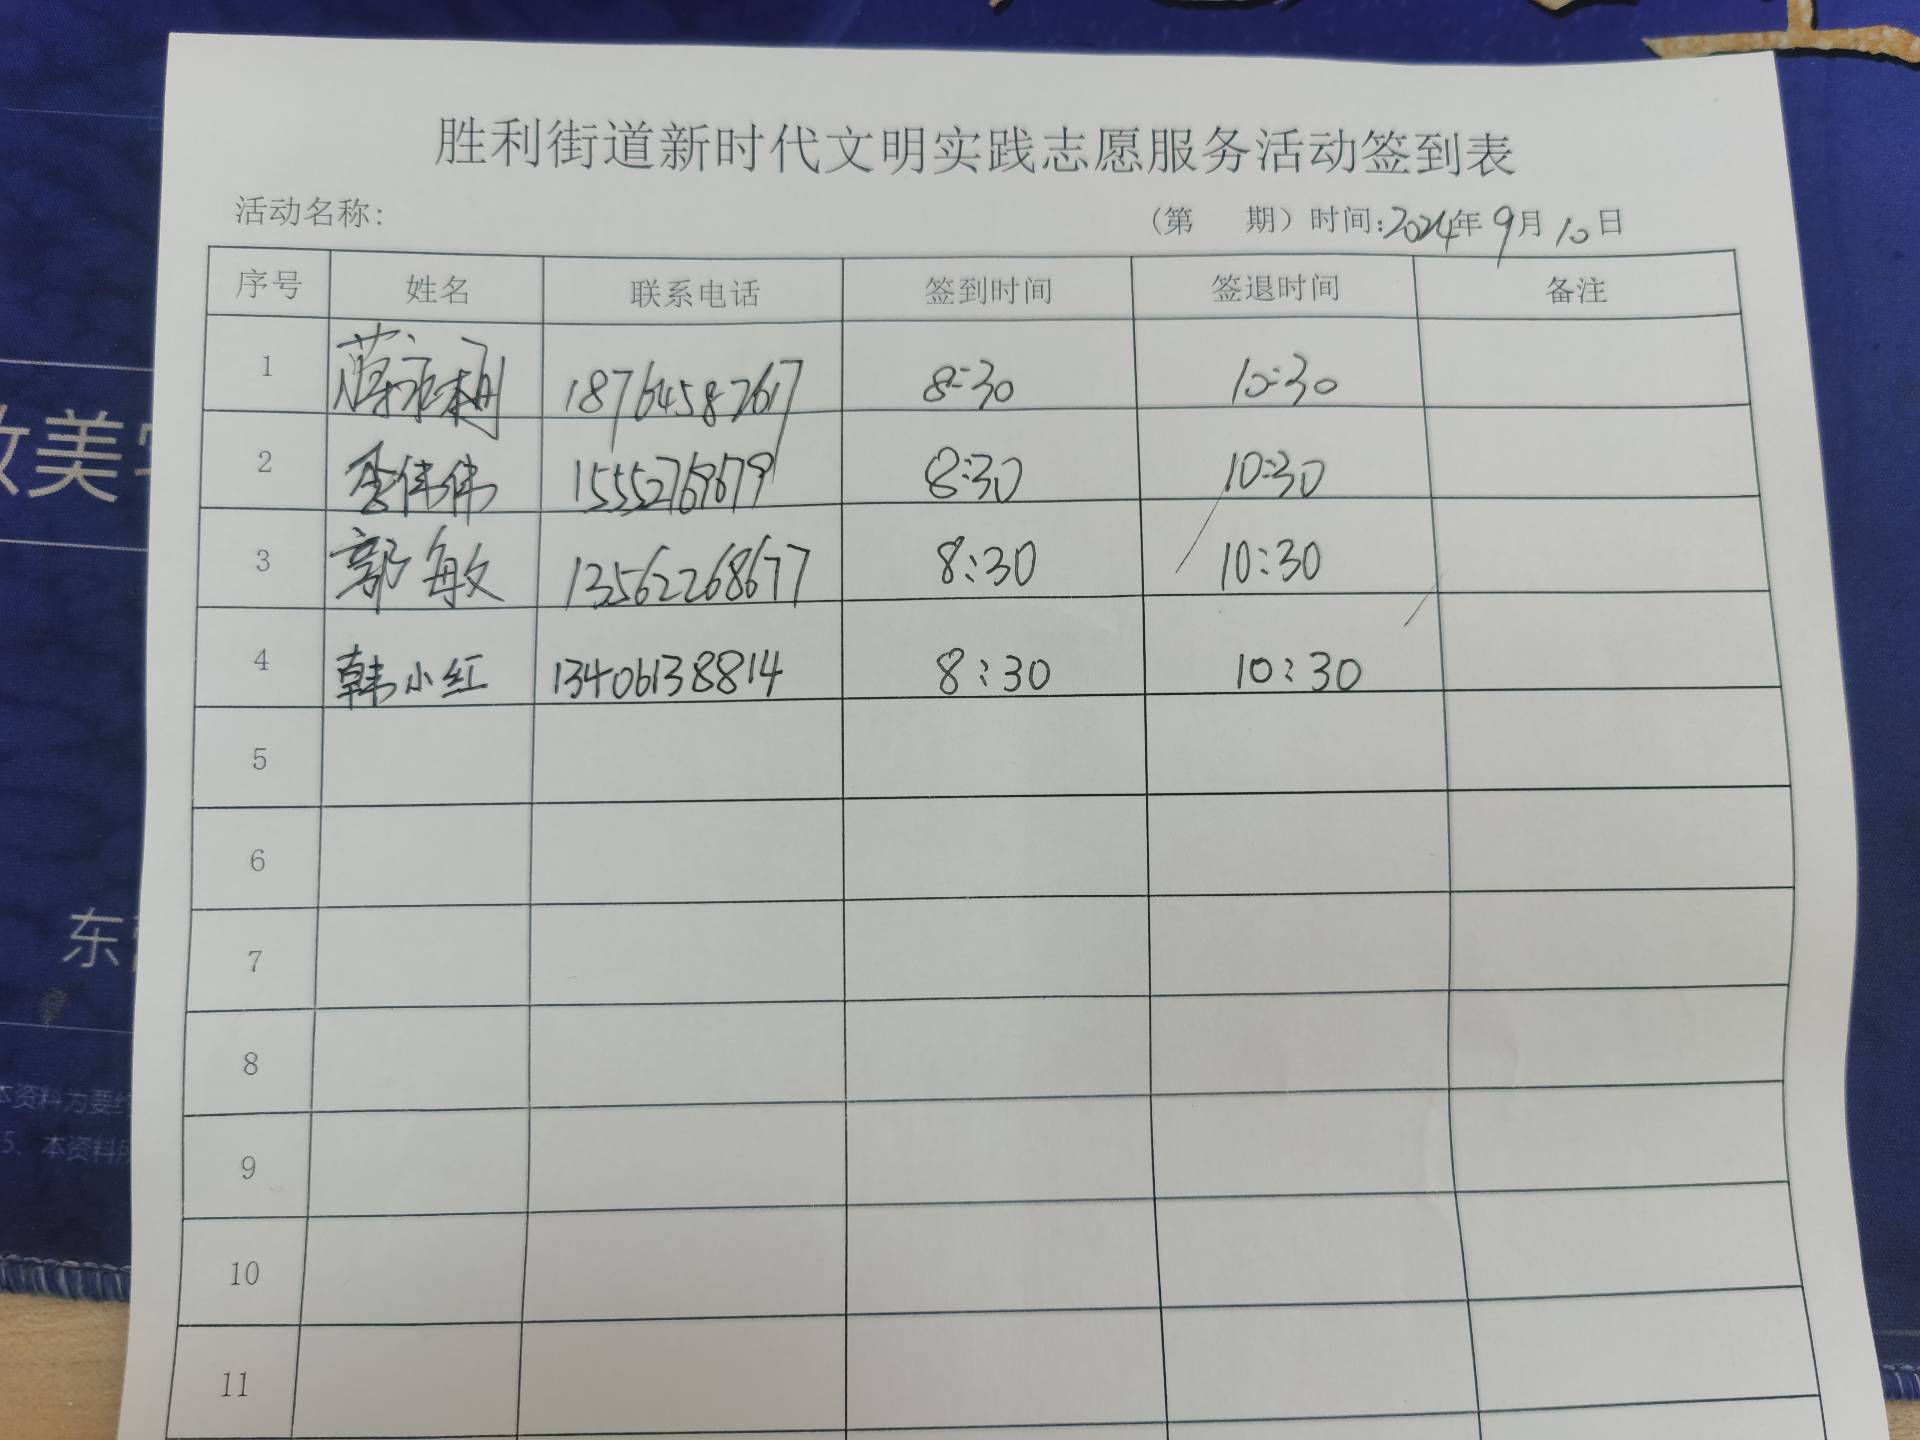 胜利街道新时代文明实践志愿服务活动签到表
活动名称: (第 期) 时间:2024年9月10日
序号 姓名 联系电话 签到时间 签退时间 备注
1 18764587617 8:30 10:30
2 李伟伟 15552769679 8:30 10:30
3 郭敏 13562268677 8:30 10:30
4 韩小红 13406138814 8:30 10:30
5
6
7
8
9
10
11
美
东
本资料为要约
5、本资料所